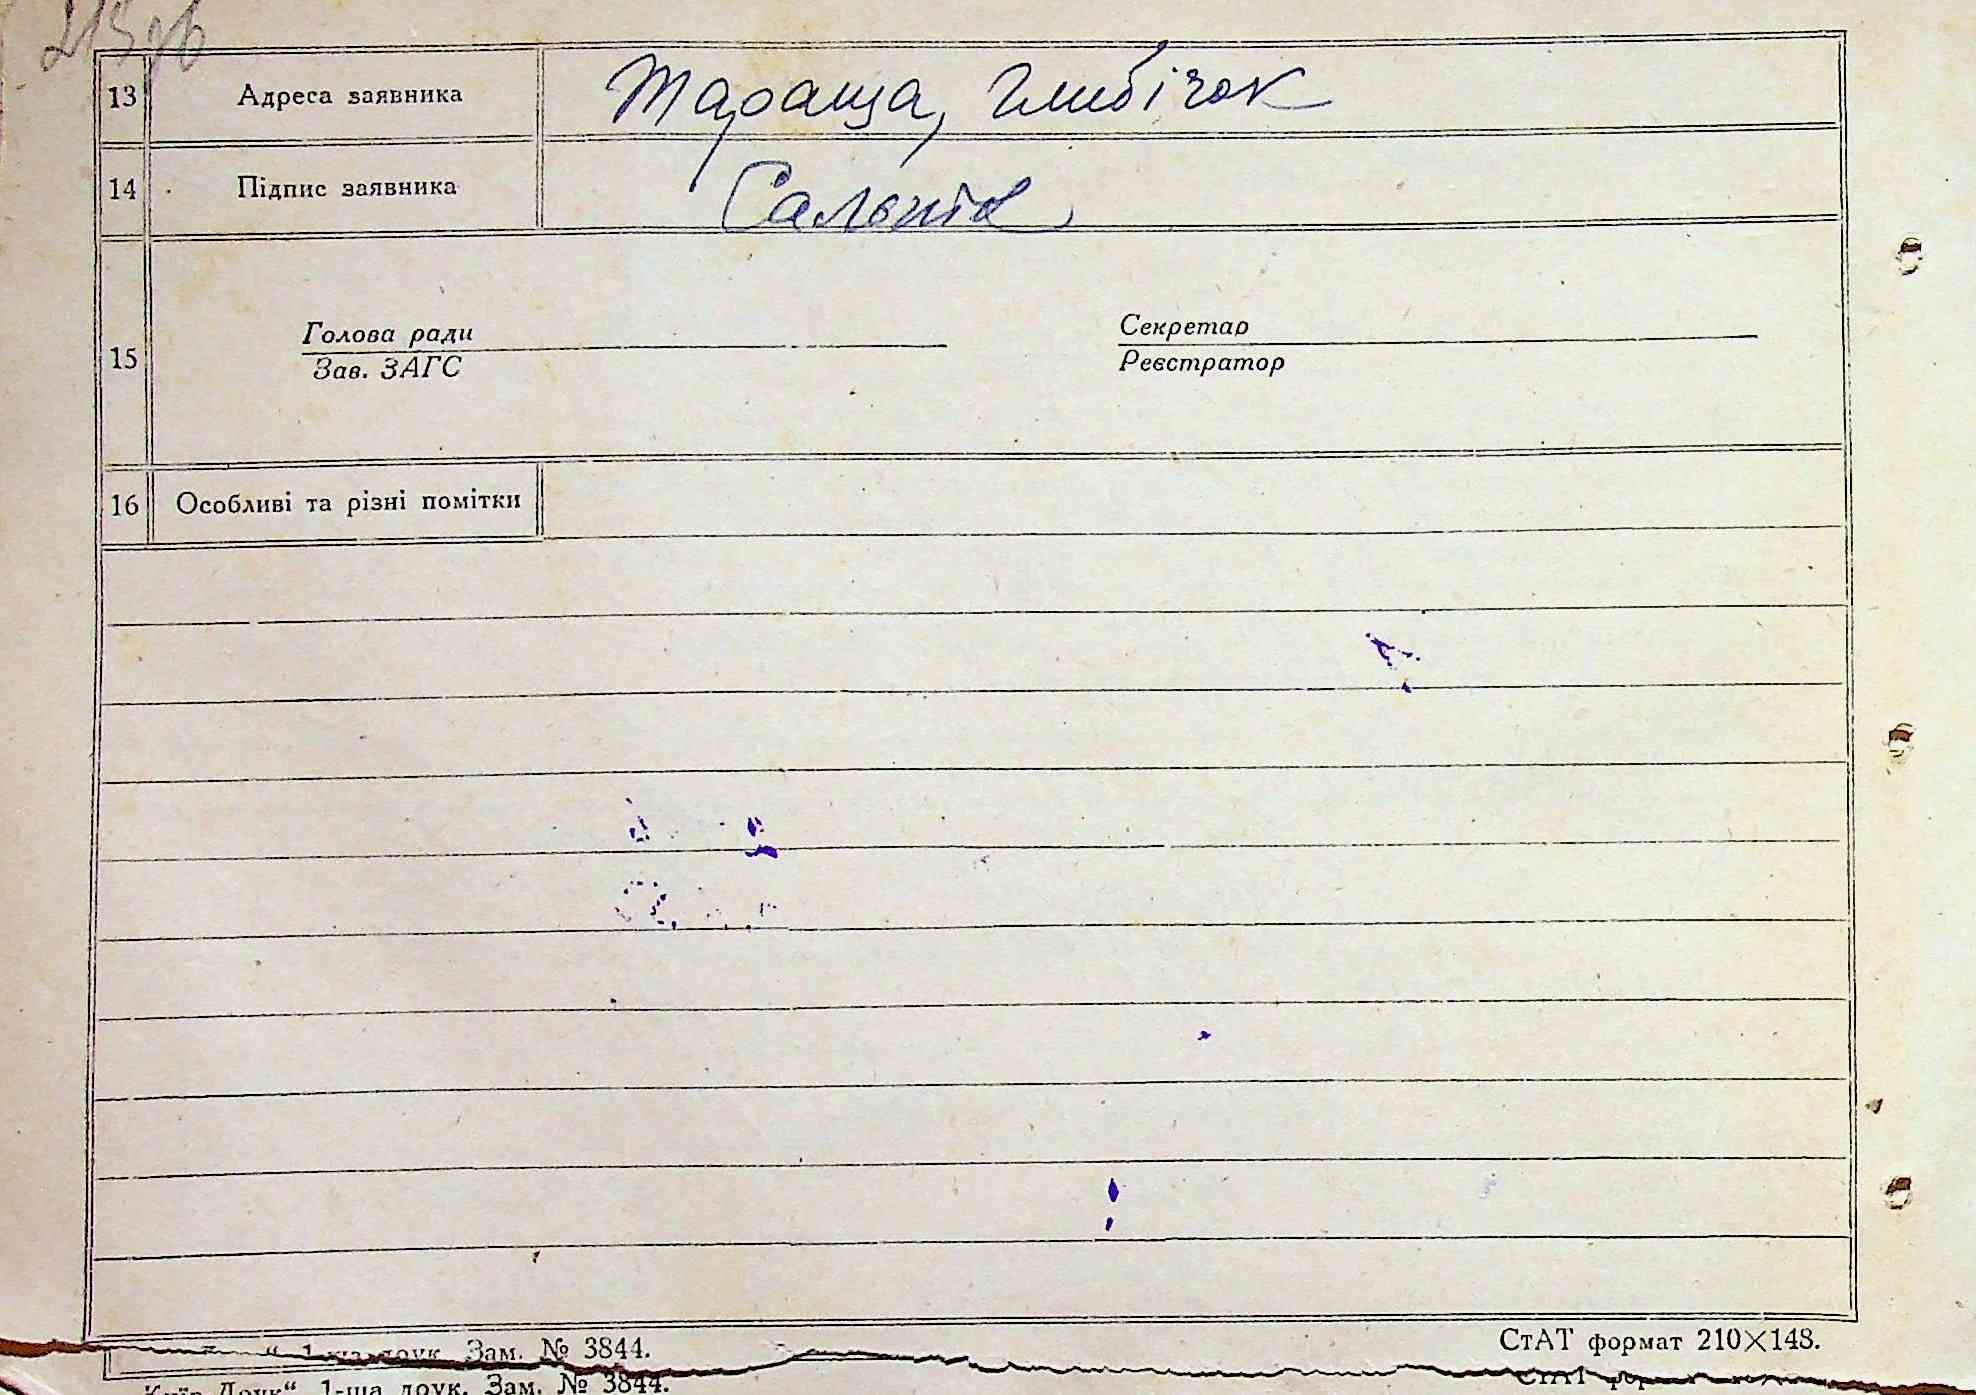 213зв
13 Адреса заявника Тараща, Глибічок
14 Підпис заявника
15 Голова ради Секретар
Зав. ЗАГС Реєстратор
16 Особливі та різні помітки
1-ша друк. Зам. № 3844. СтАТ формат 210×148.
1-ша друк. Зам. № 3844.